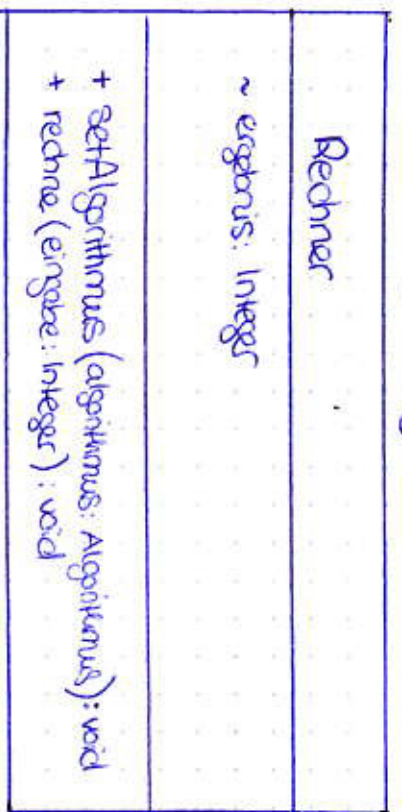 Rechner
~ ergebnis: Integer
+ setAlgorithmus (algorithmus: Algorithmus): void
+ rechne (eingabe: Integer): void